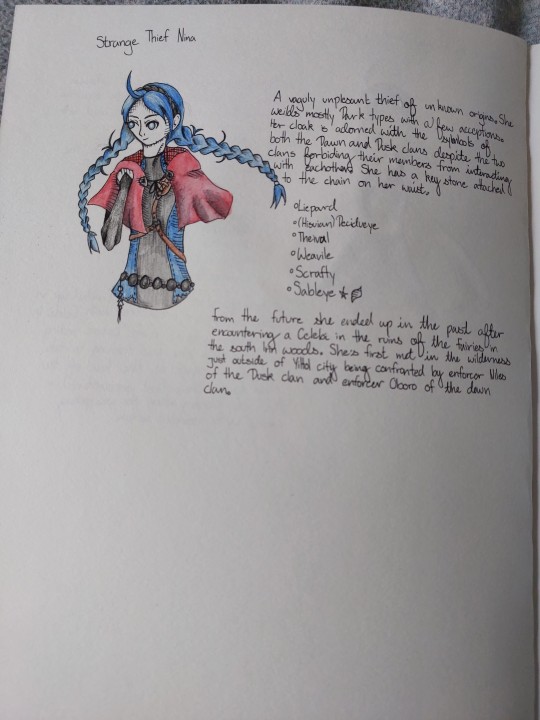 Strange Thief Nina
A vaguly unplesant thief of unknown origins. She
weilds mostly Dark types with a few acceptions.
Her cloak is adorned with the symbols of
both the Dawn and Dusk clans despite the two
clans forbiding their members from interacting
with eachother. She has a keystone atached
to the chain on her waist.
Liepard
(Hisuian) Decidueye
Theival
Weavile
Scrafty
Sableye
from the future she ended up in the past after
encountering a Celebi in the ruins of the fairies in
the south woods. She's first met in the wilderness
just outside of city being confronted by enforcer
of the Dusk clan and enforcer Oboro of the dawn
clan.